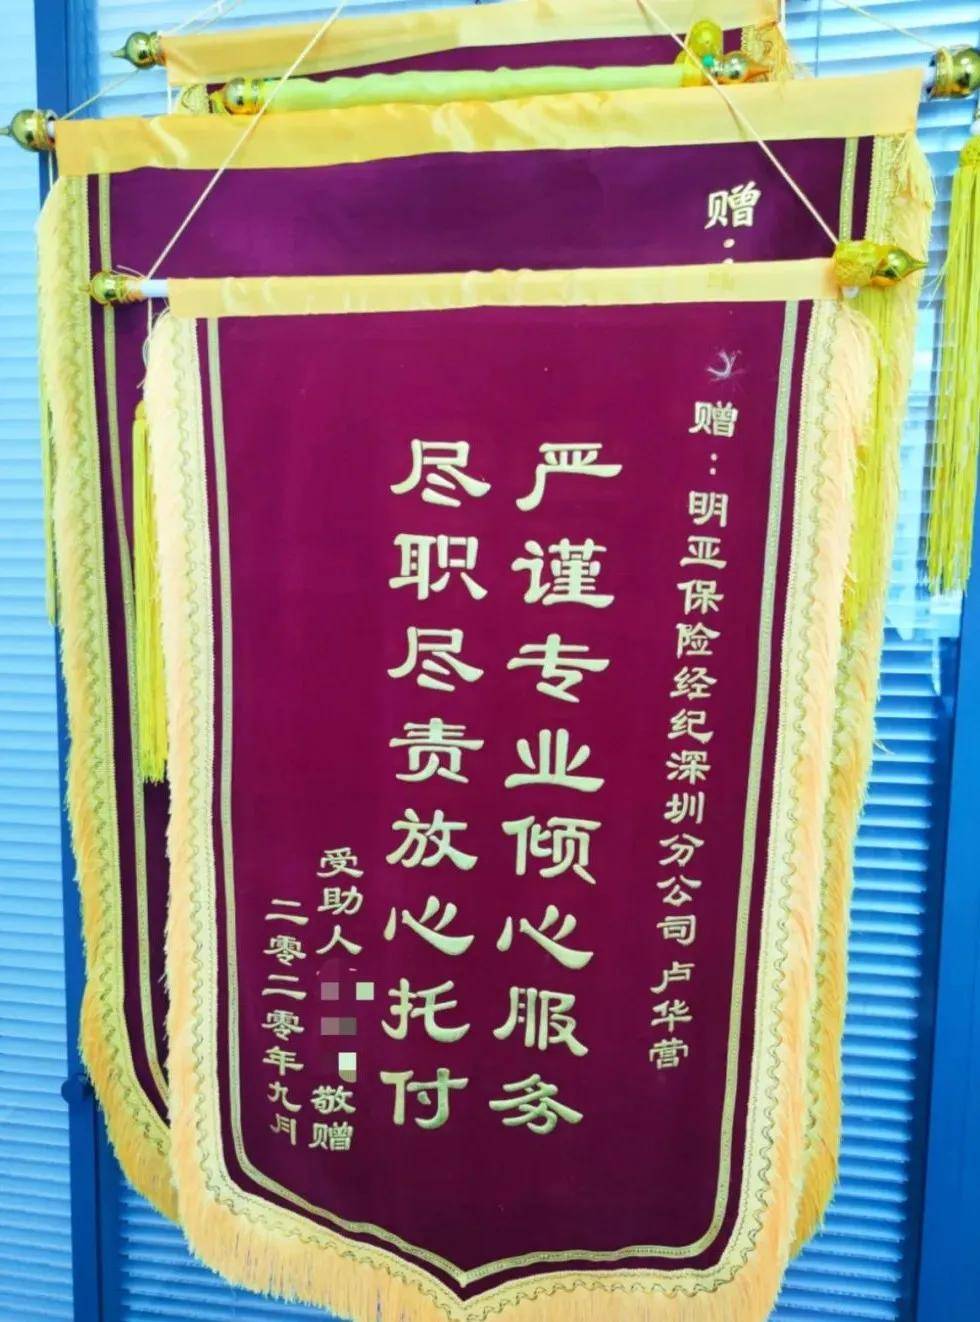 赠：
赠：明亚保险经纪深圳分公司卢华营
严谨专业倾心服务
尽职尽责放心托付
受助人
敬赠
二零二零年九月